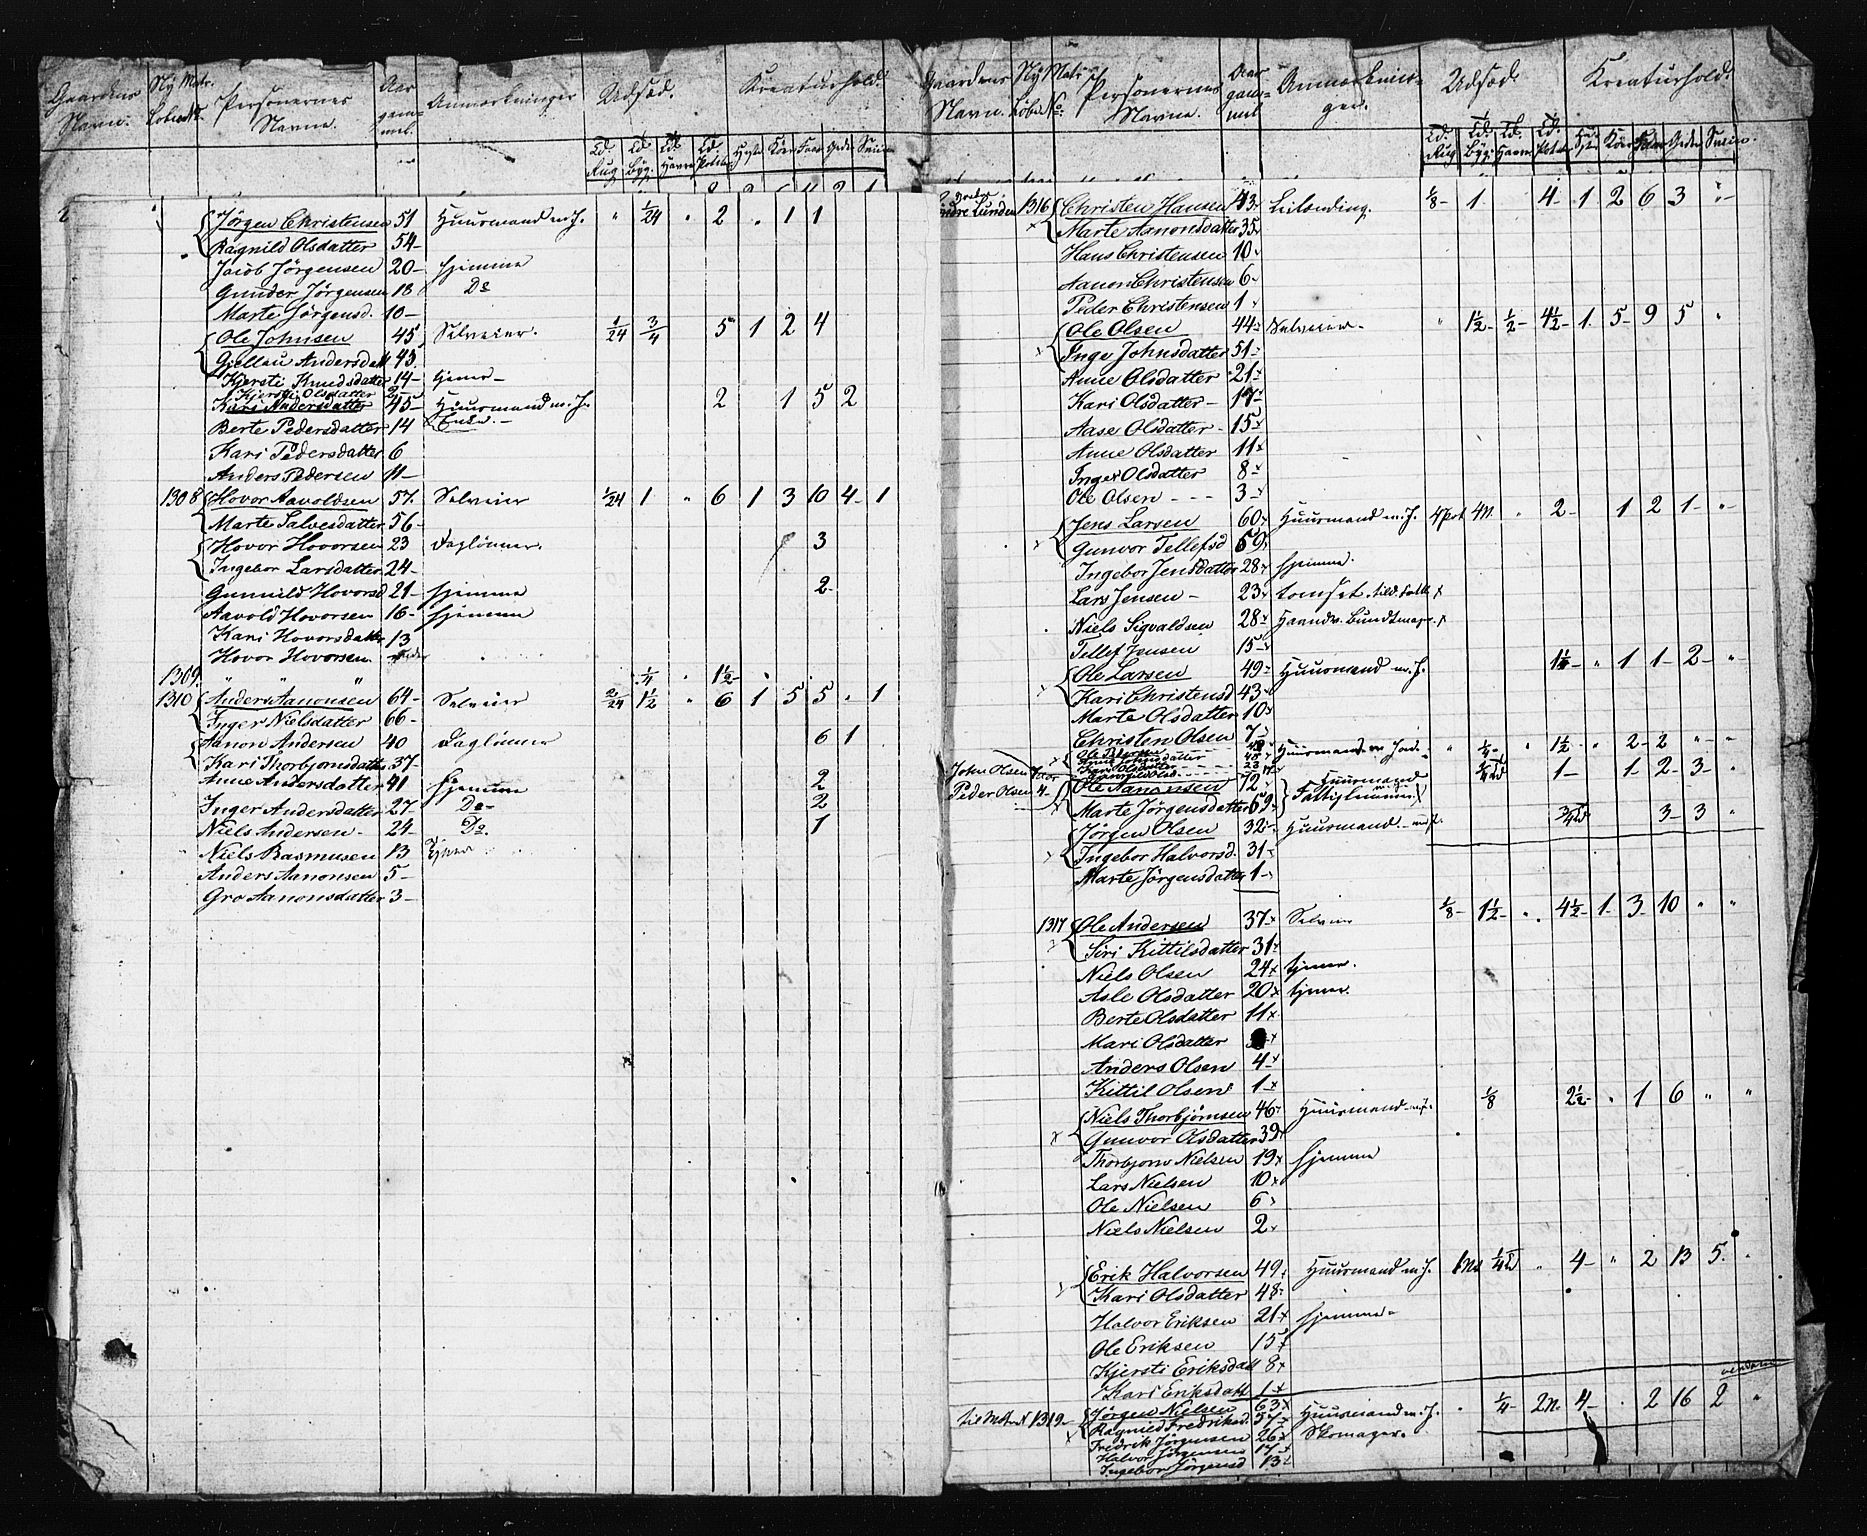 Gaardens Navn. Ny Matr. Løbe No. Personernes Navne. Aar gam- mel. Anmærkninger Udsæd. Kreaturhold.
Td. Rug Td. Byg Td. Havre Td. Poteter Heste Køer Faar Geder Sviin
Jørgen Christensen 51 Huusmand m. J. " 1/24 " 2 " 1 1
Ragnild Olsdatter 54 -
Jacob Jørgensen 20 - hjemme
Gunder Jørgensen 18 Do
Marte Jørgensd. 10 -
Ole Johnsen 45 Selveier. 1/24 3/4 5 1 2 4
Andersdatt 43.
Kjersti Knudsdatter 14 - tjener -
Kjersti Olsdatter 2
Kari Andersdatter 45 - Huusmand m. J. 2 1 5 2
Berte Pedersdatter 14 Enke. -
Kari Pedersdatter 6
Anders Pedersen 11 -
1308 Hovor Aavoldsen 57. Selveier 1/24 1 " 6 1 3 10 4 - 1
Marte Salvesdatter 56 -
Hovor Hovorsen 23 Daglønner. 3
Ingebor Larsdatter 24 -
Gunnild Hovorsd 21 - hjemme 2
Aavold Hovorsen 16 - hjemme
Kari Hovorsdatter 13
Hovor Hovorsen
1309. " " " 1/4 " 1½ - "
1310 Anders Aanonsen 64 - Selveier 2/24 1½ " 6 1 5 5 " 1
Inger Nielsdatter 66 -
Aanon Andersen 40 Daglønner 6 1
Kari Thorbjornsdatter 37 -
Anne Andersdatter 41 hjemme 2
Inger Andersdatter 27 - Do - 2
Niels Andersen - 24 - Do. 1
Niels Rasmusen 13 Tjener
Anders Aanonsen 5 -
Gro Aanonsdatter 3 -
Gaardens Navn. Ny Matr Løbe No. Personernes Navne. Aar gam- mel Anmærknin- ger. Udsæd. Kreaturhold.
Td. Rug Td. Byg. Td. Havre Td. Potet Heste Køer Faar Geder Sviin.
Lunden 1316 Christen Hansen 43 Leilending. 1/8 - 1 4 - 1 2 6 3 "
Marte Aanonsdatter 35
Hans Christensen 10 -
Aanon Christensen 6 -
Peder Christensen 1
Ole Olsen 44 Selveier - " 1½ - ½ - 4½ - 1 5 - 9 5 "
Inge Johnsdatter 51 -
Anne Olsdatter 21 -
Kari Olsdatter - 17
Aase Olsdatter - 15
Anne Olsdatter 11
Inger Olsdatter 8
Ole Olsen - - - 3
Jens Larsen 60 Huusmand m. J. 4 Pot 4 " 2 - 1 2 1 - " -
Gunvor Tellefsd 59
Ingebor Jensdatter 28 hjemme.
Lars Jensen - 23
Niels Sigvaldsen 28
Tellef Jensen 15
Ole Larsen 49 - Huusmand m. J. 1½ - " 1 1 - 2 - " -
Kari Christensd 43 -
Marte Olsdatter 10
Christen Olsen 7 -
Huusmand m Jord " ¼ - " 1½ - " 2 - 2 " - "
John Olsen Peder Olsen 4 - Ole Aanonsen 72 - Huusmand 1 - 1 - 2 - 3 - "
Marte Jørgensdatter 69
Jørgen Olsen 32 - Huusmand - 3 - 3 "
Ingebor Halvorsd. 31 -
Marte Jørgensdatter 1 -
1317 Ole Andersen 37 Selveier 1/8 - 1½ - " 4½ - 1 - 3 - 10 " "
Siri Kittilsdatter 31
Niels Olsen 24 tjener.
Asle Olsdatter 20 tjener.
Berte Olsdatter 11
Mari Olsdatter
Anders Olsen 4
Kittil Olsen 1
Niels Thorbjørnsen 46 Huusmand 1/8 2½ - " 1 6 " "
Gunvor Olsdatter 39
Thorbjorn Nielsen 19 hjemme
Lars Nielsen 10
Ole Nielsen 6
Niels Nielsen 2
Erik Halvorsen 49. Huusmand m. J. ¼ " 4 - " 2 13 5. "
Kari Olsdatter 48
Halvor Eriksen 21 hjemme -
Ole Eriksen 15
Kjersti Eriksdatt 8
Kari Eriksdatt 1
til Matr N 1319 - Jørgen Nielsen 63 Huusmand m. J. " ¼ - 2 4 - " 2 16 2 "
Ragnild Fredriksd 57 Skomager.
Fredrik Jørgensen 26
Halvor Jørgensen 17
Ingebor Jørgensd 13